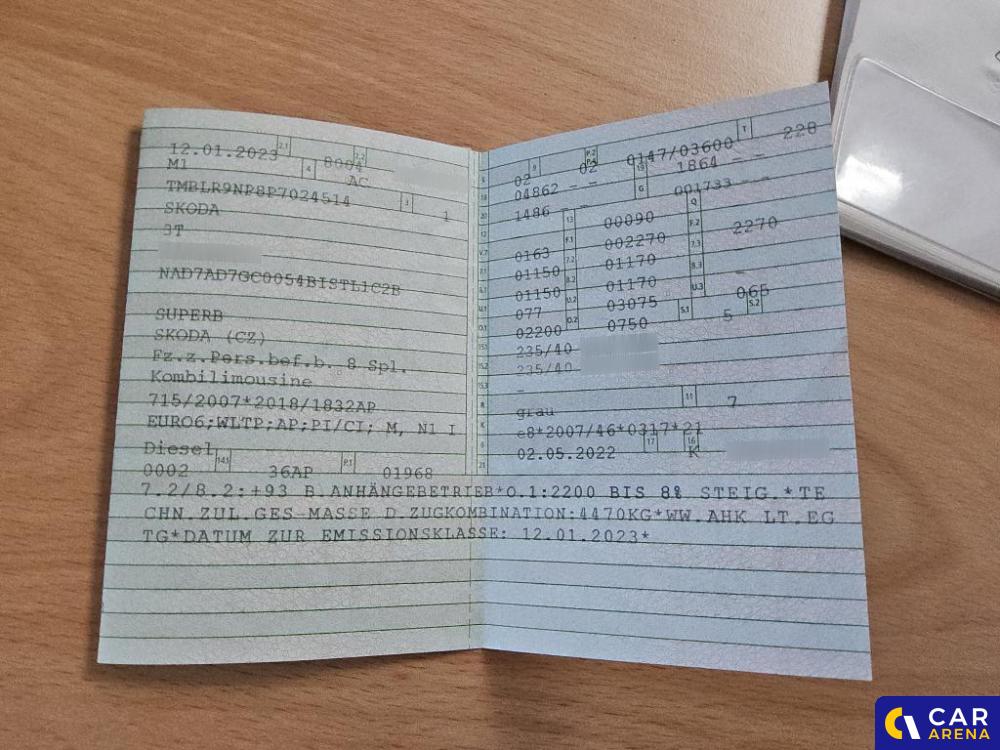 12.01.2023 2.1 8004 2.2
M1 4 AC
TMBLR9NP8P7024514 3 1
SKODA
3T
NAD7AD7GC0054BISTL1C2B
SUPERB
SKODA (CZ)
Fz.z.Pers.bef.b. 8 Spl.
Kombilimousine
715/2007*2018/1832AP
EURO6;WLTP;AP;PI/CI; M, N1 I
Diesel
0002 14.1 36AP P.1 01968
02 9 02 P.2 P.4 0147/03600 T 228
04862 - - 19 1864 - -
1486 - - G 001733 - -
13 00090 Q
0163 F.1 002270 F.2 2270
01150 7.2 01170 7.3
01150 8.2 01170 8.3
077 U.2 03075 U.3 065
02200 O.2 0750 S.1 5 S.2
235/40
235/40
-
grau 11 7
e8*2007/46*0317*21
02.05.2022 17 K 16
7.2/8.2:+93 B.ANHÄNGEBETRIEB*O.1:2200 BIS 8% STEIG.*TE
CHN.ZUL.GES-MASSE D.ZUGKOMBINATION:4470KG*WW.AHK LT.EG
TG*DATUM ZUR EMISSIONSKLASSE: 12.01.2023*
CAR
ARENA